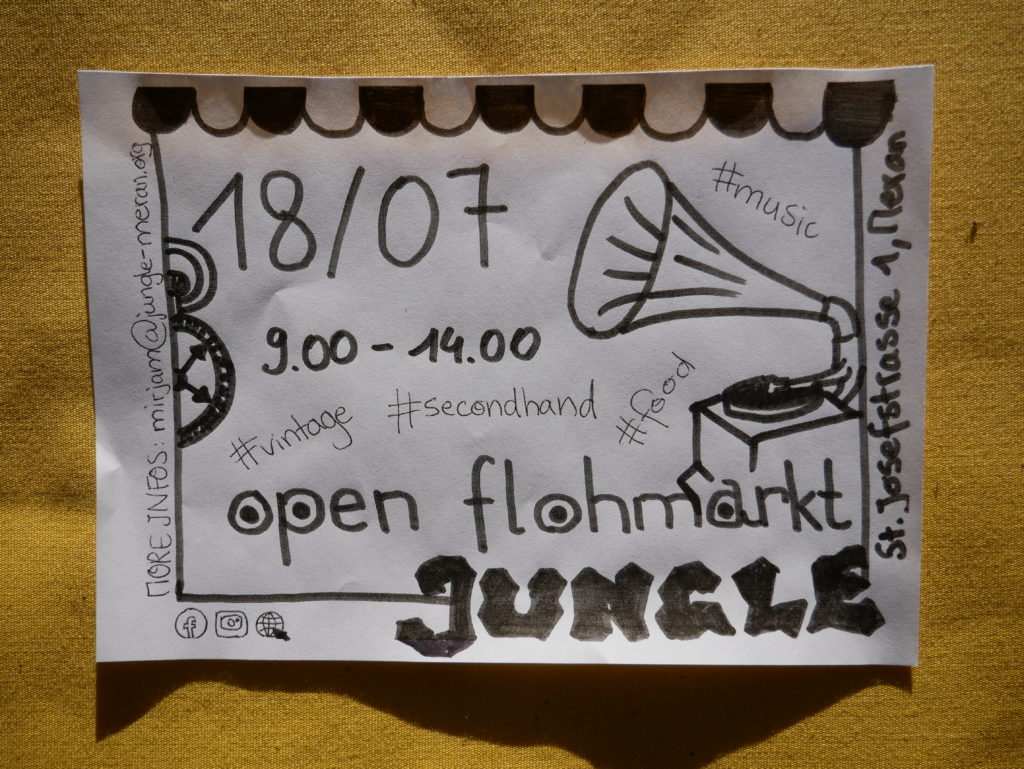 18/07
#music
9.00 - 14.00
#vintage
#secondhand
#food
open flohmarkt
JUNGLE
MORE INFOS: mirjam@jungle-meran.org
St. Josefstrasse 1, Meran